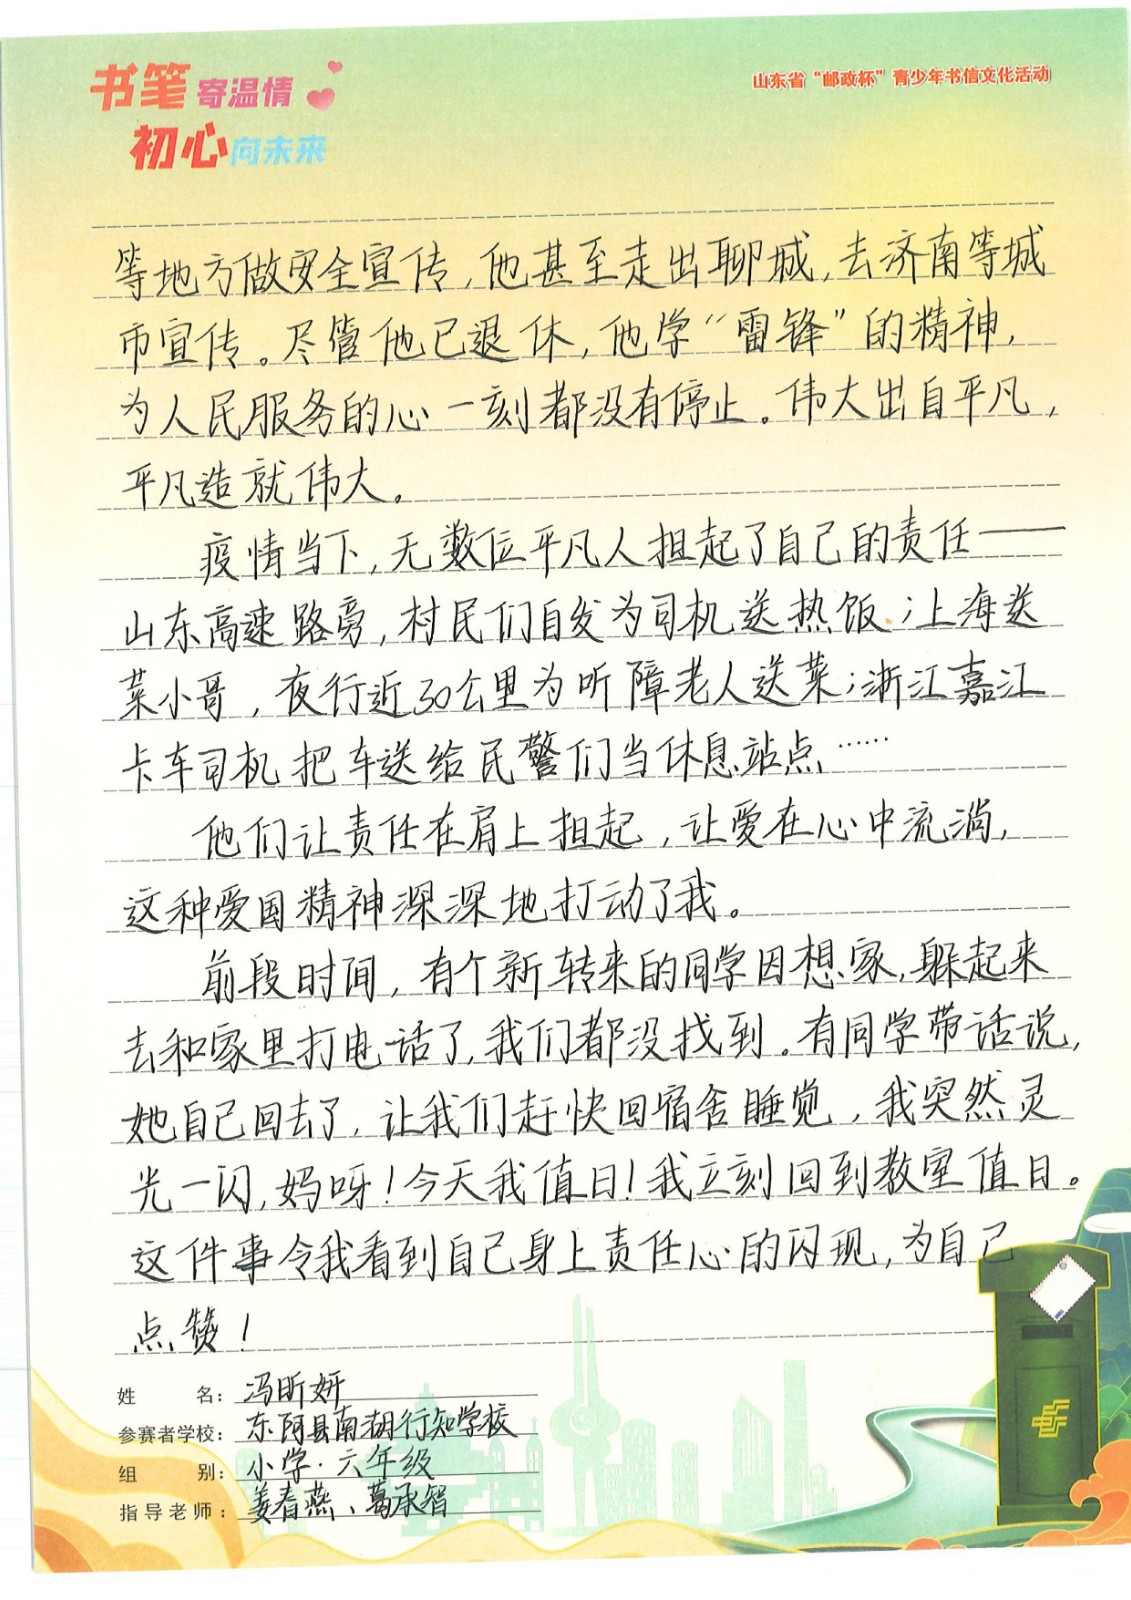 书笔寄温情
初心向未来
山东省“邮政杯”青少年书信文化活动
等地方做安全宣传，他甚至走出聊城，去济南等城
市宣传。尽管他已退休，他学“雷锋”的精神，
为人民服务的心一刻都没有停止。伟大出自平凡，
平凡造就伟大。
疫情当下，无数位平凡人担起了自己的责任——
山东高速路旁，村民们自发为司机送热饭；上海送
菜小哥，夜行近30公里为听障老人送菜；浙江嘉江
卡车司机把车送给民警们当休息站点……
他们让责任在肩上担起，让爱在心中流淌，
这种爱国精神深深地打动了我。
前段时间，有个新转来的同学因想家，躲起来
去和家里打电话了，我们都没找到。有同学带话说，
她自己回去了，让我们赶快回宿舍睡觉，我突然灵
光一闪，妈呀！今天我值日！我立刻回到教室值日。
这件事令我看到自己身上责任心的闪现，为自己
点赞！
姓名：冯昕妍
参赛者学校：东阿县南湖行知学校
组别：小学·六年级
指导老师：姜春燕、葛承智